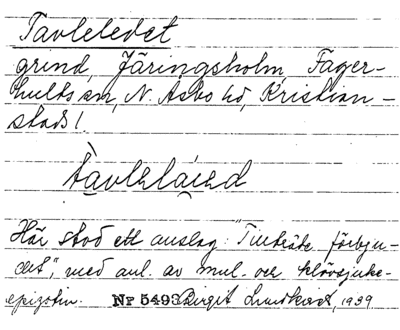 Tavleledet
grind, Järingsholm, Fager-
hults sn, N. Åsbo hd, Kristian-
stads l.
tavlelaied
Här stod ett anslag: "Tillträde förbju-
det", med anl. av mul- och klövsjuke-
epizotin. Nr 5493 Birgit 1939